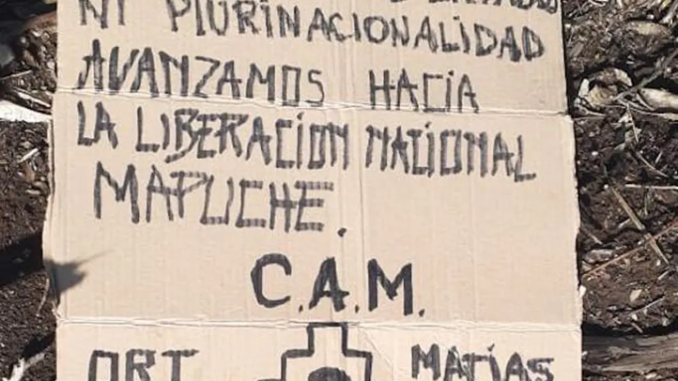 NI PLURINACIONALIDAD
AVANZAMOS HACIA
LA LIBERACION NACIONAL
MAPUCHE.
C.A.M.
ORT MATÍAS